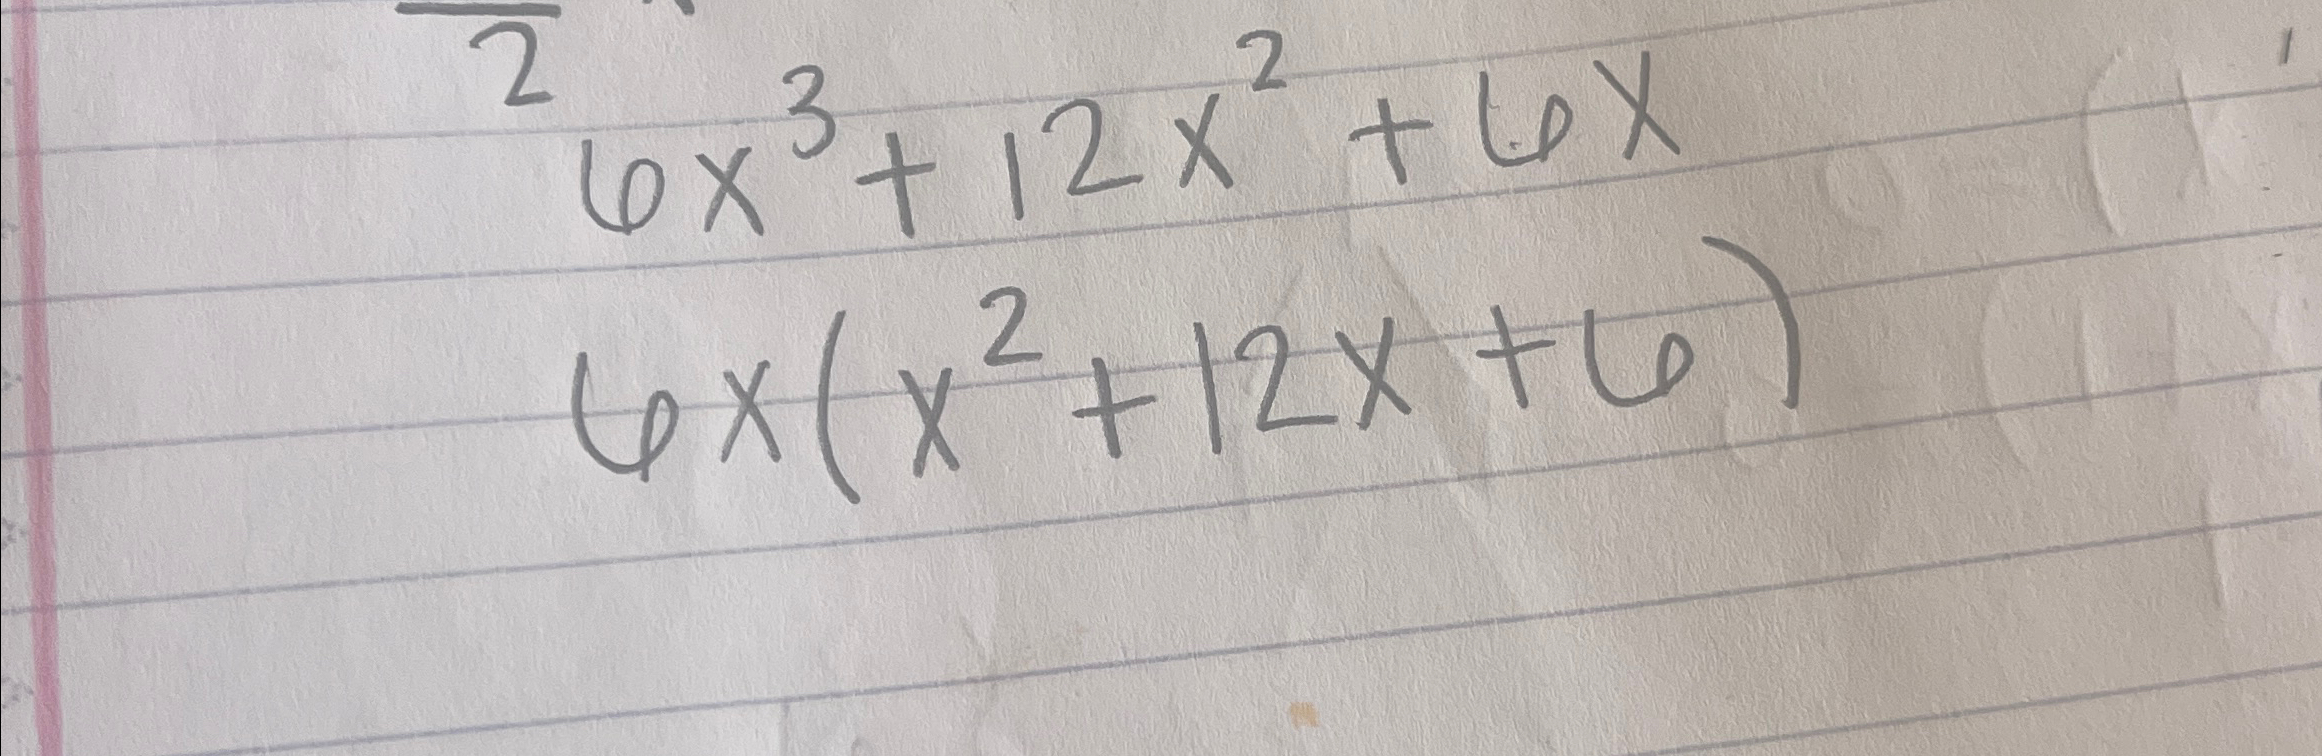 2
6x³ + 12x² + 6x
6x(x² + 12x + 6)